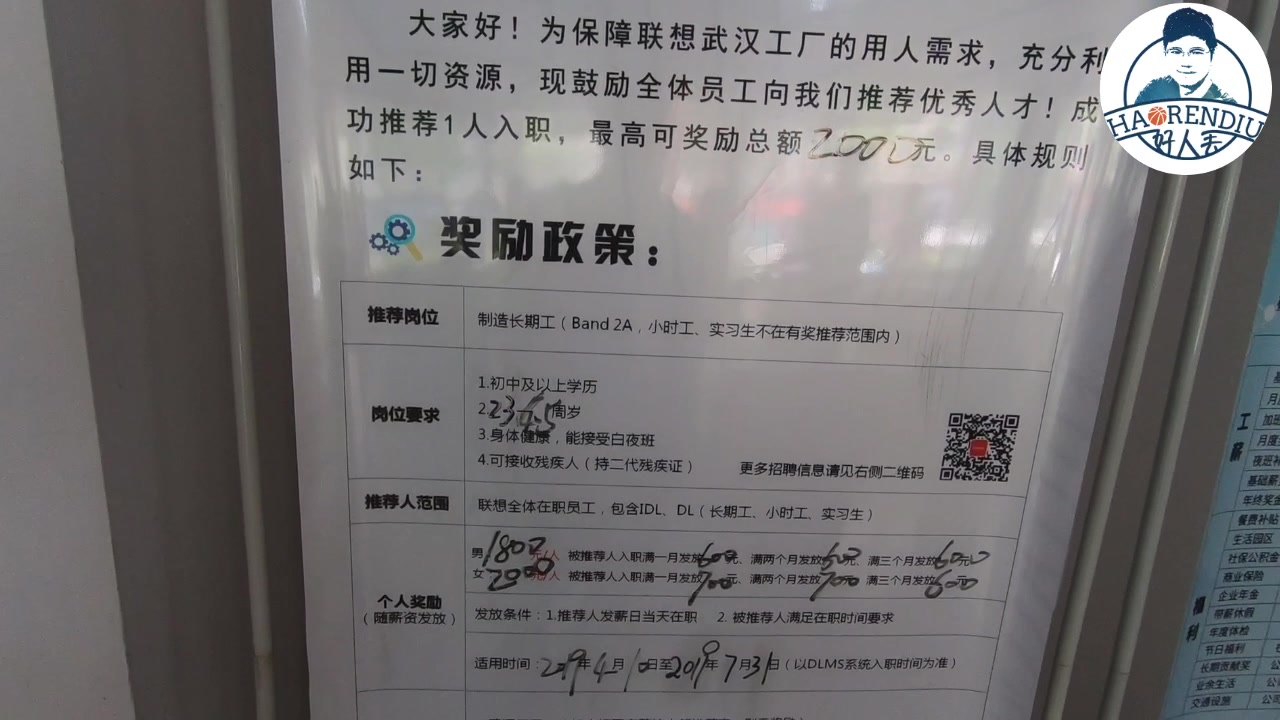 大家好！为保障联想武汉工厂的用人需求，充分利
用一切资源，现鼓励全体员工向我们推荐优秀人才！成
功推荐1人入职，最高可奖励总额2000元。具体规则
如下：
HAORENDIU
好人丢
奖励政策：
推荐岗位
制造长期工（Band 2A，小时工、实习生不在有奖推荐范围内）
岗位要求
1.初中及以上学历
2. 周岁
3.身体健康，能接受白夜班
4.可接收残疾人（持二代残疾证）
更多招聘信息请见右侧二维码
推荐人范围
联想全体在职员工，包含IDL、DL（长期工、小时工、实习生）
个人奖励
（随薪资发放）
男1800元/人 被推荐人入职满一月发放600元、满两个月发放600元、满三个月发放600元
女2000元/人 被推荐人入职满一月发放700元、满两个月发放700 满三个月发放600元
发放条件：1.推荐人发薪日当天在职 2. 被推荐人满足在职时间要求
适用时间：2019年4月10日至2019年7月31日（以DLMS系统入职时间为准）
工薪
加班
月度
夜班补
基础薪
年终奖金
福利
餐费补贴
生活园区
社保公积金
商业保险
企业年金
带薪休假
年度体检
节日福利
长期贡献奖
业余生活
交通设施